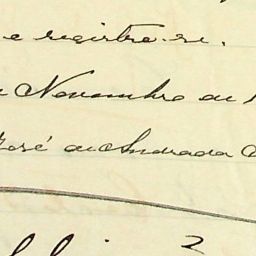 e registre-se.
Novembro de 1
José de Andrada
2